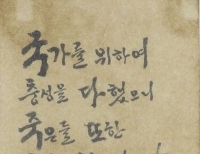 국가를 위하여
충성을 다했으니
죽은들 또한